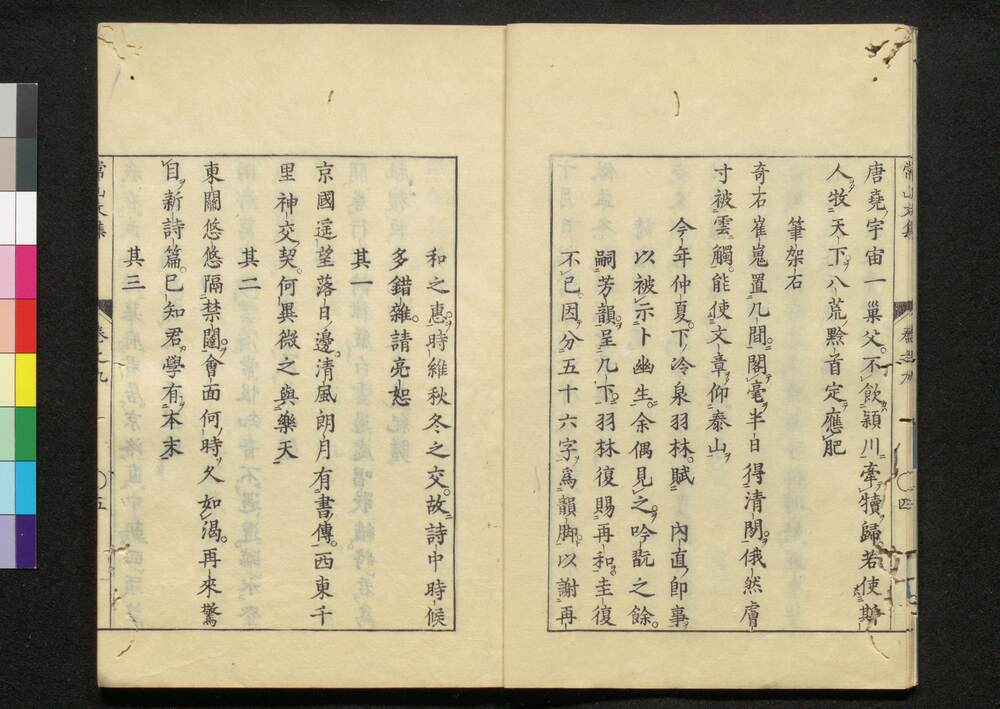 唐堯宇宙一巢父不飲潁川牽犢歸若使斯
人牧天下八荒黔首定應肥
筆架石
奇石崔嵬置几間閣毫半日得清閑俄然膚
寸被雲觸能使文章仰泰山
今年仲夏下冷泉羽林賦內直卽事
以被示卜幽生余偶見之吟翫之餘
嗣芳韻呈几下羽林復賜再和圭復
不已因分五十六字爲韻脚以謝再
四
和之惠時維秋冬之交故詩中時候
多錯雜請亮恕
其一
京國遥望落日邊清風朗月有書傳西東千
里神交契何異微之與樂天
其二
東關悠悠隔禁闈會面何時久如渴再來驚
目新詩篇已知君學有本末
其三
常山文集
卷之九
五